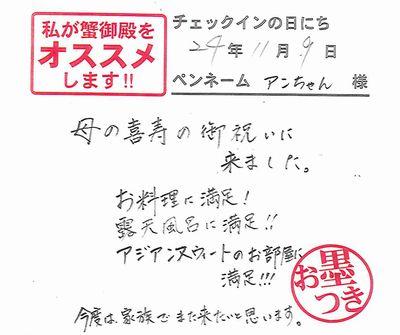 私が蟹御殿を
オススメ
します!!
チェックインの日にち
24年11月9日
ペンネーム アンちゃん 様
母の喜寿の御祝いに
来ました。
お料理に満足!
露天風呂に満足!!
アジアンスウィートのお部屋に
満足!!!
お墨つき
今度は家族でまた来たいと思います。